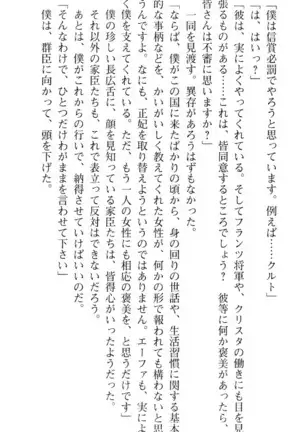 「僕は信賞必罰でやろうと思っています。例えば……クルト」
「は、はいっ?」
「彼は、実によくやってくれている。そしてフランツ将軍や、クリスタの働きにも目を見
張るものがある……これは、皆同意するところでしょう? 彼等に何か褒美があったら、
皆さんは不審に思いますか?」
一同を見渡す。異存があろうはずもなかった。
「ならば、僕がこの国に来たばかりの頃から、身の回りの世話や、生活習慣に関する基本
的な事柄などを、かいがいしく教えてくれた女性が、何かの形で報われても構わないと思
うんですよ。なにも、正妃を取り替えようというのではありません。エーファも、実によ
く僕を支えてくれている。ただ、もう一人の女性にも相応の褒美を、と思うだけです」
僕の珍しい長広舌に、顔を見知っている家臣たちは、皆得心がいったようだった。
それ以外の家臣たちも、これで表立って反対はできないだろう。
あとは、僕がこれからの行いで、納得させていけばいいのだ。
「そんなわけで、ひとつだけわがままを言わせて下さい」
僕は、群臣に向かって、頭を下げた。